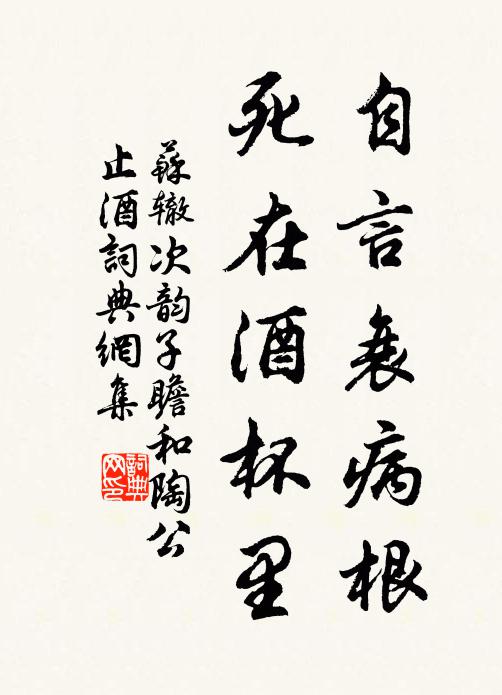 自言衰病根
死在酒杯里
蘇辙次韵子瞻和陶公
止酒詞典網集
詞典
网印